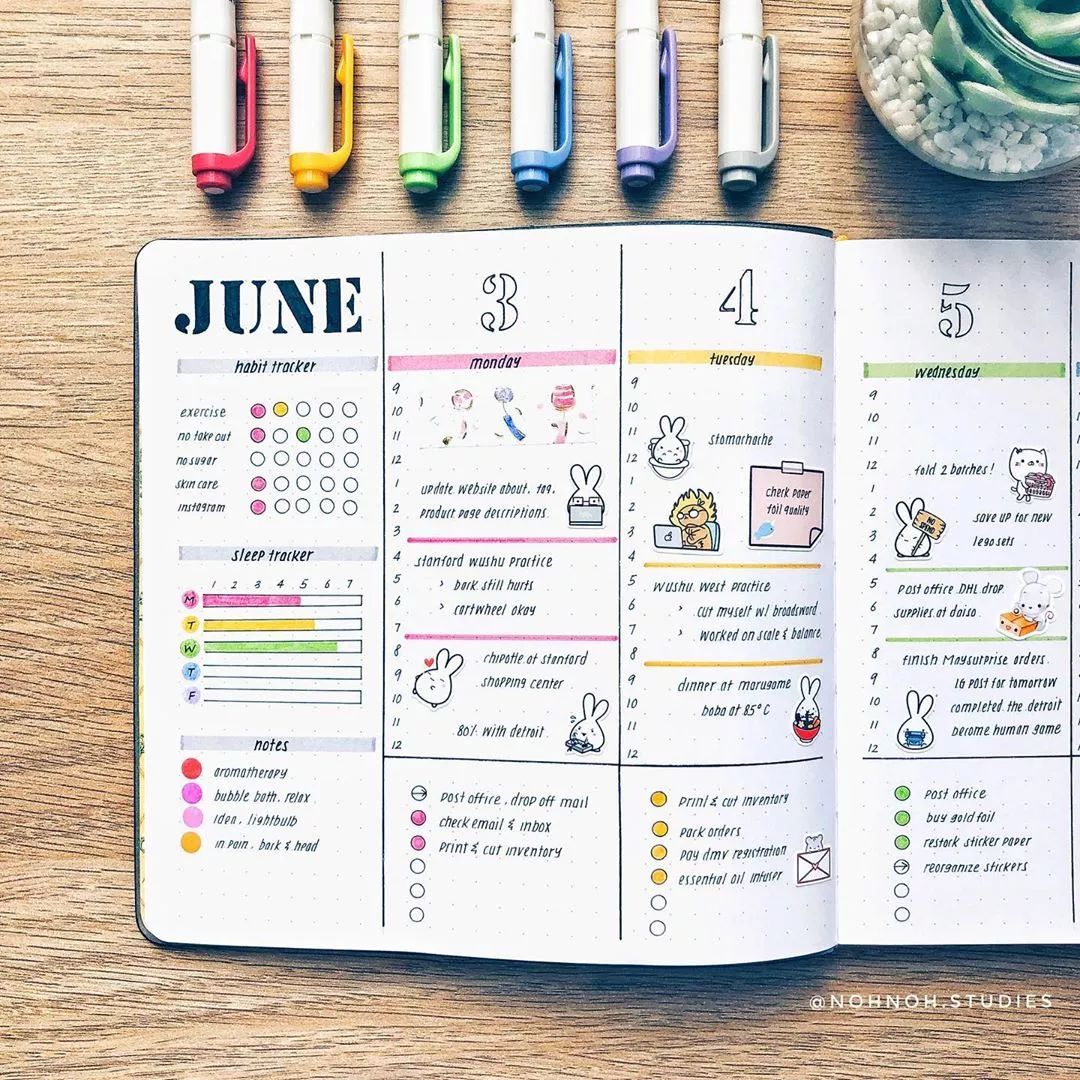 JUNE
habit tracker
exercise
no take out
no sugar
skin care
instagram
sleep tracker
1 2 3 4 5 6 7
M
T
W
T
F
notes
aromatherapy
bubble bath, relax
idea, lightbulb
in pain, back & head
3
monday
9
10
11
12
1
2
3
4
5
6
7
8
9
10
11
12
update website about, faq,
product page descriptions
stanford wushu practice
> back still hurts
> cartwheel okay
chipotle at stanford
shopping center
80% with detroit
post office, drop off mail
check email & inbox
print & cut inventory
4
tuesday
9
10
11
12
1
2
3
4
5
6
7
8
9
10
11
12
stomachache
check paper
foil quality
wushu west practice
> cut myself w/ broadsword
> worked on scale & balance
dinner at marugame
boba at 85°C
print & cut inventory
pack orders
pay dmv registration
essential oil infuser
5
wednesday
9
10
11
12
1
2
3
4
5
6
7
8
9
10
11
12
fold 2 batches!
NO
SPEND
save up for new
lego sets
post office DHL drop
supplies at daiso
finish Maysurprise orders
IG post for tomorrow
completed the detroit
become human game
post office
buy gold foil
restock sticker paper
reorganize stickers
@NOHNOH.STUDIES